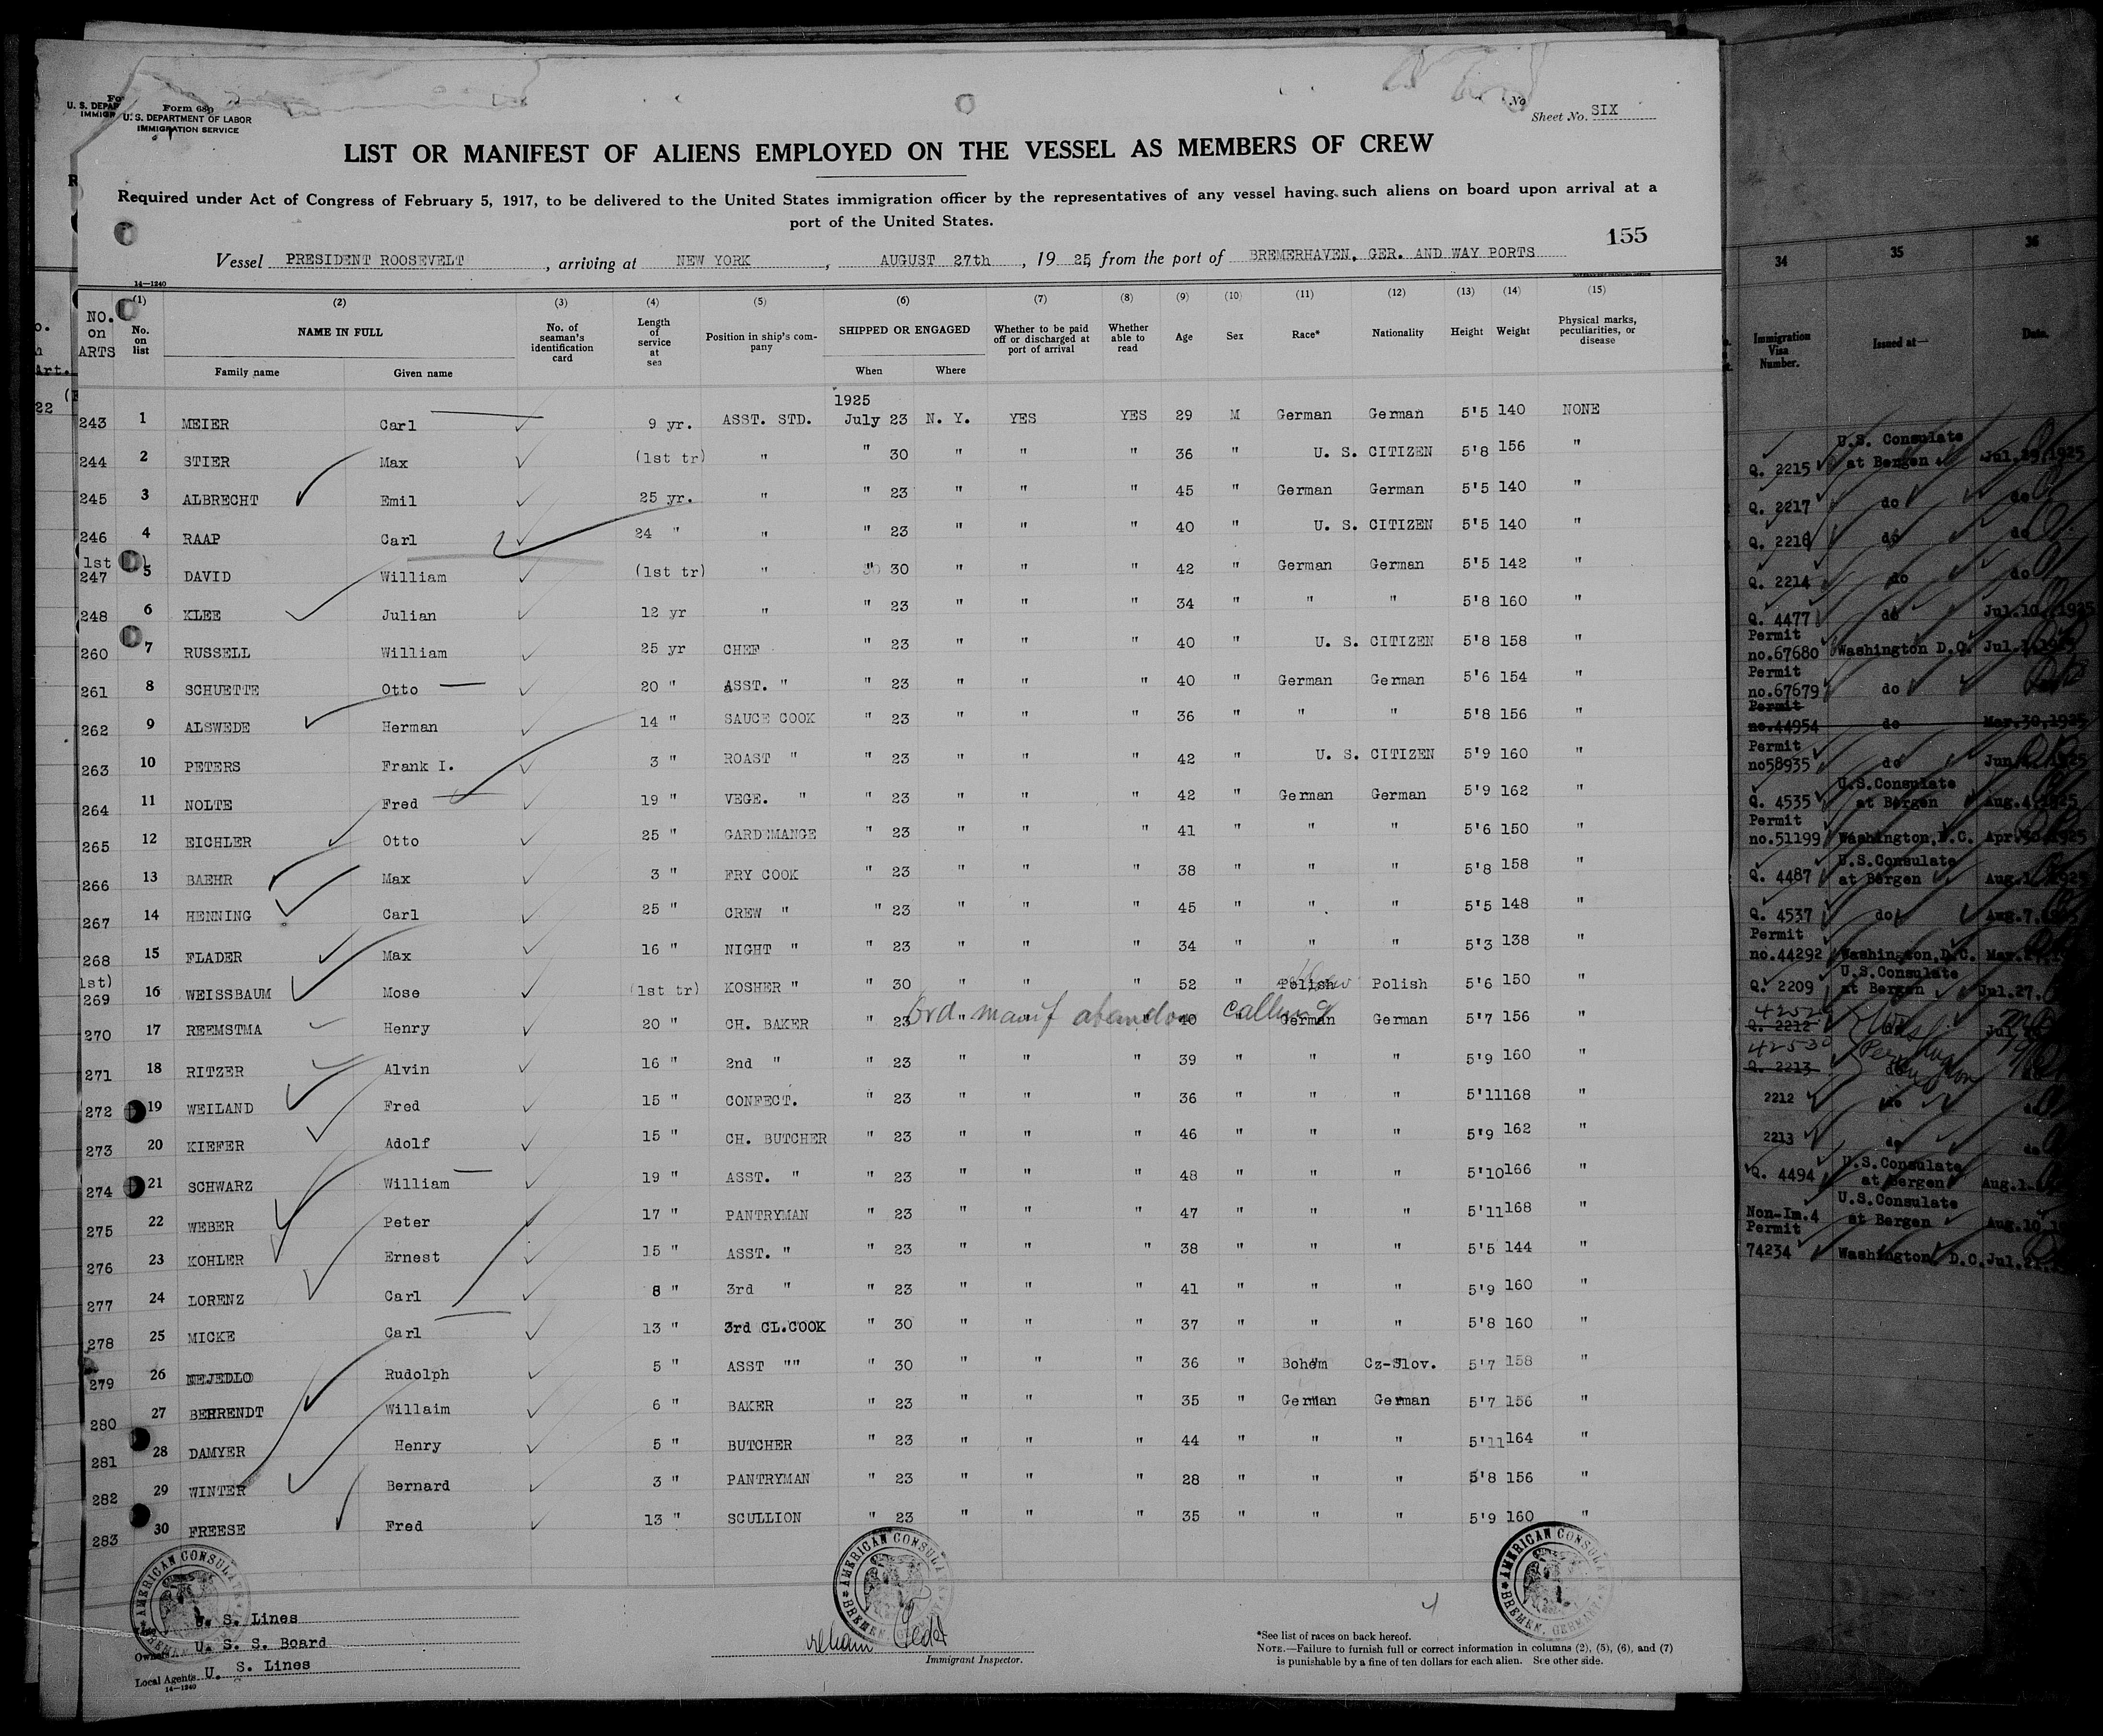 Form 680
U. S. DEPARTMENT OF LABOR
IMMIGRATION SERVICE
Sheet No. SIX
LIST OR MANIFEST OF ALIENS EMPLOYED ON THE VESSEL AS MEMBERS OF CREW
Required under Act of Congress of February 5, 1917, to be delivered to the United States immigration officer by the representatives of any vessel having such aliens on board upon arrival at a
port of the United States.
155
Vessel PRESIDENT ROOSEVELT, arriving at NEW YORK, AUGUST 27th, 1925, from the port of BREMERHAVEN, GER. AND WAY PORTS
14—1240
(1) (2) (3) (4) (5) (6) (7) (8) (9) (10) (11) (12) (13) (14) (15)
NO. on ARTS No. on list NAME IN FULL No. of seaman's identification card Length of service at sea Position in ship's company SHIPPED OR ENGAGED Whether to be paid off or discharged at port of arrival Whether able to read Age Sex Race* Nationality Height Weight Physical marks, peculiarities, or disease
Family name Given name When Where
1925
243 1 MEIER Carl 9 yr. ASST. STD. July 23 N. Y. YES YES 29 M German German 5'5 140 NONE
244 2 STIER Max (1st tr) " " 30 " " " 36 " U. S. CITIZEN 5'8 156 "
245 3 ALBRECHT Emil 25 yr. " " 23 " " " 45 " German German 5'5 140 "
246 4 RAAP Carl 24 " " " 23 " " " 40 " U. S. CITIZEN 5'5 140 "
1st
247 5 DAVID William (1st tr) " " 30 " " " 42 " German German 5'5 142 "
248 6 KLEE Julian 12 yr " " 23 " " " 34 " " " 5'8 160 "
260 7 RUSSELL William 25 yr CHEF " 23 " " " 40 " U. S. CITIZEN 5'8 158 "
261 8 SCHUETTE Otto 20 " ASST. " " 23 " " " 40 " German German 5'6 154 "
262 9 ALSWEDE Herman 14 " SAUCE COOK " 23 " " " 36 " " " 5'8 156 "
263 10 PETERS Frank I. 3 " ROAST " " 23 " " " 42 " U. S. CITIZEN 5'9 160 "
264 11 NOLTE Fred 19 " VEGE. " " 23 " " " 42 " German German 5'9 162 "
265 12 EICHLER Otto 25 " GARDEMANGE " 23 " " " 41 " " " 5'6 150 "
266 13 BAEHR Max 3 " FRY COOK " 23 " " " 38 " " " 5'8 158 "
267 14 HENNING Carl 25 " CREW " " 23 " " " 45 " " " 5'5 148 "
268 15 FLADER Max 16 " NIGHT " " 23 " " " 34 " " " 5'3 138 "
1st)
269 16 WEISSBAUM Mose (1st tr) KOSHER " " 30 " " " 52 " Polish Polish 5'6 150 "
Ord manif abandon calling
270 17 REEMSTMA Henry 20 " CH. BAKER " 23 " " " 40 " German German 5'7 156 "
271 18 RITZER Alvin 16 " 2nd " " 23 " " " 39 " " " 5'9 160 "
272 19 WEILAND Fred 15 " CONFECT. " 23 " " " 36 " " " 5'11 168 "
273 20 KIEFER Adolf 15 " CH. BUTCHER " 23 " " " 46 " " " 5'9 162 "
274 21 SCHWARZ William 19 " ASST. " " 23 " " " 48 " " " 5'10 166 "
275 22 WEBER Peter 17 " PANTRYMAN " 23 " " " 47 " " " 5'11 168 "
276 23 KOHLER Ernest 15 " ASST. " " 23 " " " 38 " " " 5'5 144 "
277 24 LORENZ Carl 8 " 3rd " " 23 " " " 41 " " " 5'9 160 "
278 25 MICKE Carl 13 " 3rd CL.COOK " 30 " " " 37 " " " 5'8 160 "
279 26 NEJEDLO Rudolph 5 " ASST "" " 30 " " " 36 " Bohem Cz-Slov. 5'7 158 "
280 27 BEHRENDT Willaim 6 " BAKER " 23 " " " 35 " German German 5'7 156 "
281 28 DAMYER Henry 5 " BUTCHER " 23 " " " 44 " " " 5'11 164 "
282 29 WINTER Bernard 3 " PANTRYMAN " 23 " " " 28 " " " 5'8 156 "
283 30 FREESE Fred 13 " SCULLION " 23 " " " 35 " " " 5'9 160 "
AMERICAN CONSULATE BREMEN, GERMANY
AMERICAN CONSULATE BREMEN, GERMANY
AMERICAN CONSULATE BREMEN, GERMANY
U. S. Lines
Owners U. S. S. Board
Local Agents U. S. Lines
14—1240
Immigrant Inspector.
*See list of races on back hereof.
NOTE.—Failure to furnish full or correct information in columns (2), (5), (6), and (7)
is punishable by a fine of ten dollars for each alien. See other side.
34 35 36
Immigration Visa Number. Issued at— Date.
Q. 2215 U.S. Consulate at Bergen Jul.29,1925
Q. 2217 do do
Q. 2216 do do
Q. 2214 do do
Q. 4477 do Jul.10,1925
Permit no.67680 Washington D.C. Jul.
Permit no.67679 do
Permit no.44954 do Mar.30,1925
Permit no58935 do Jun.
Q. 4535 U.S.Consulate at Bergen Aug.4,1925
Permit no.51199 Washington,D.C. Apr.30,1925
Q. 4487 U.S.Consulate at Bergen Aug.1
Q. 4537 do Aug.7,
Permit no.44292 Washington,D.C. Mar.
Q. 2209 U.S.Consulate at Bergen Jul.27.
Q. 2212 do Jul.
42530
Q. 2213 do
2212 do do
2213 do do
Q. 4494 U.S.Consulate at Bergen Aug.1
Non-Im.4 U.S.Consulate at Bergen Aug.10
Permit 74234 Washington D.C. Jul.